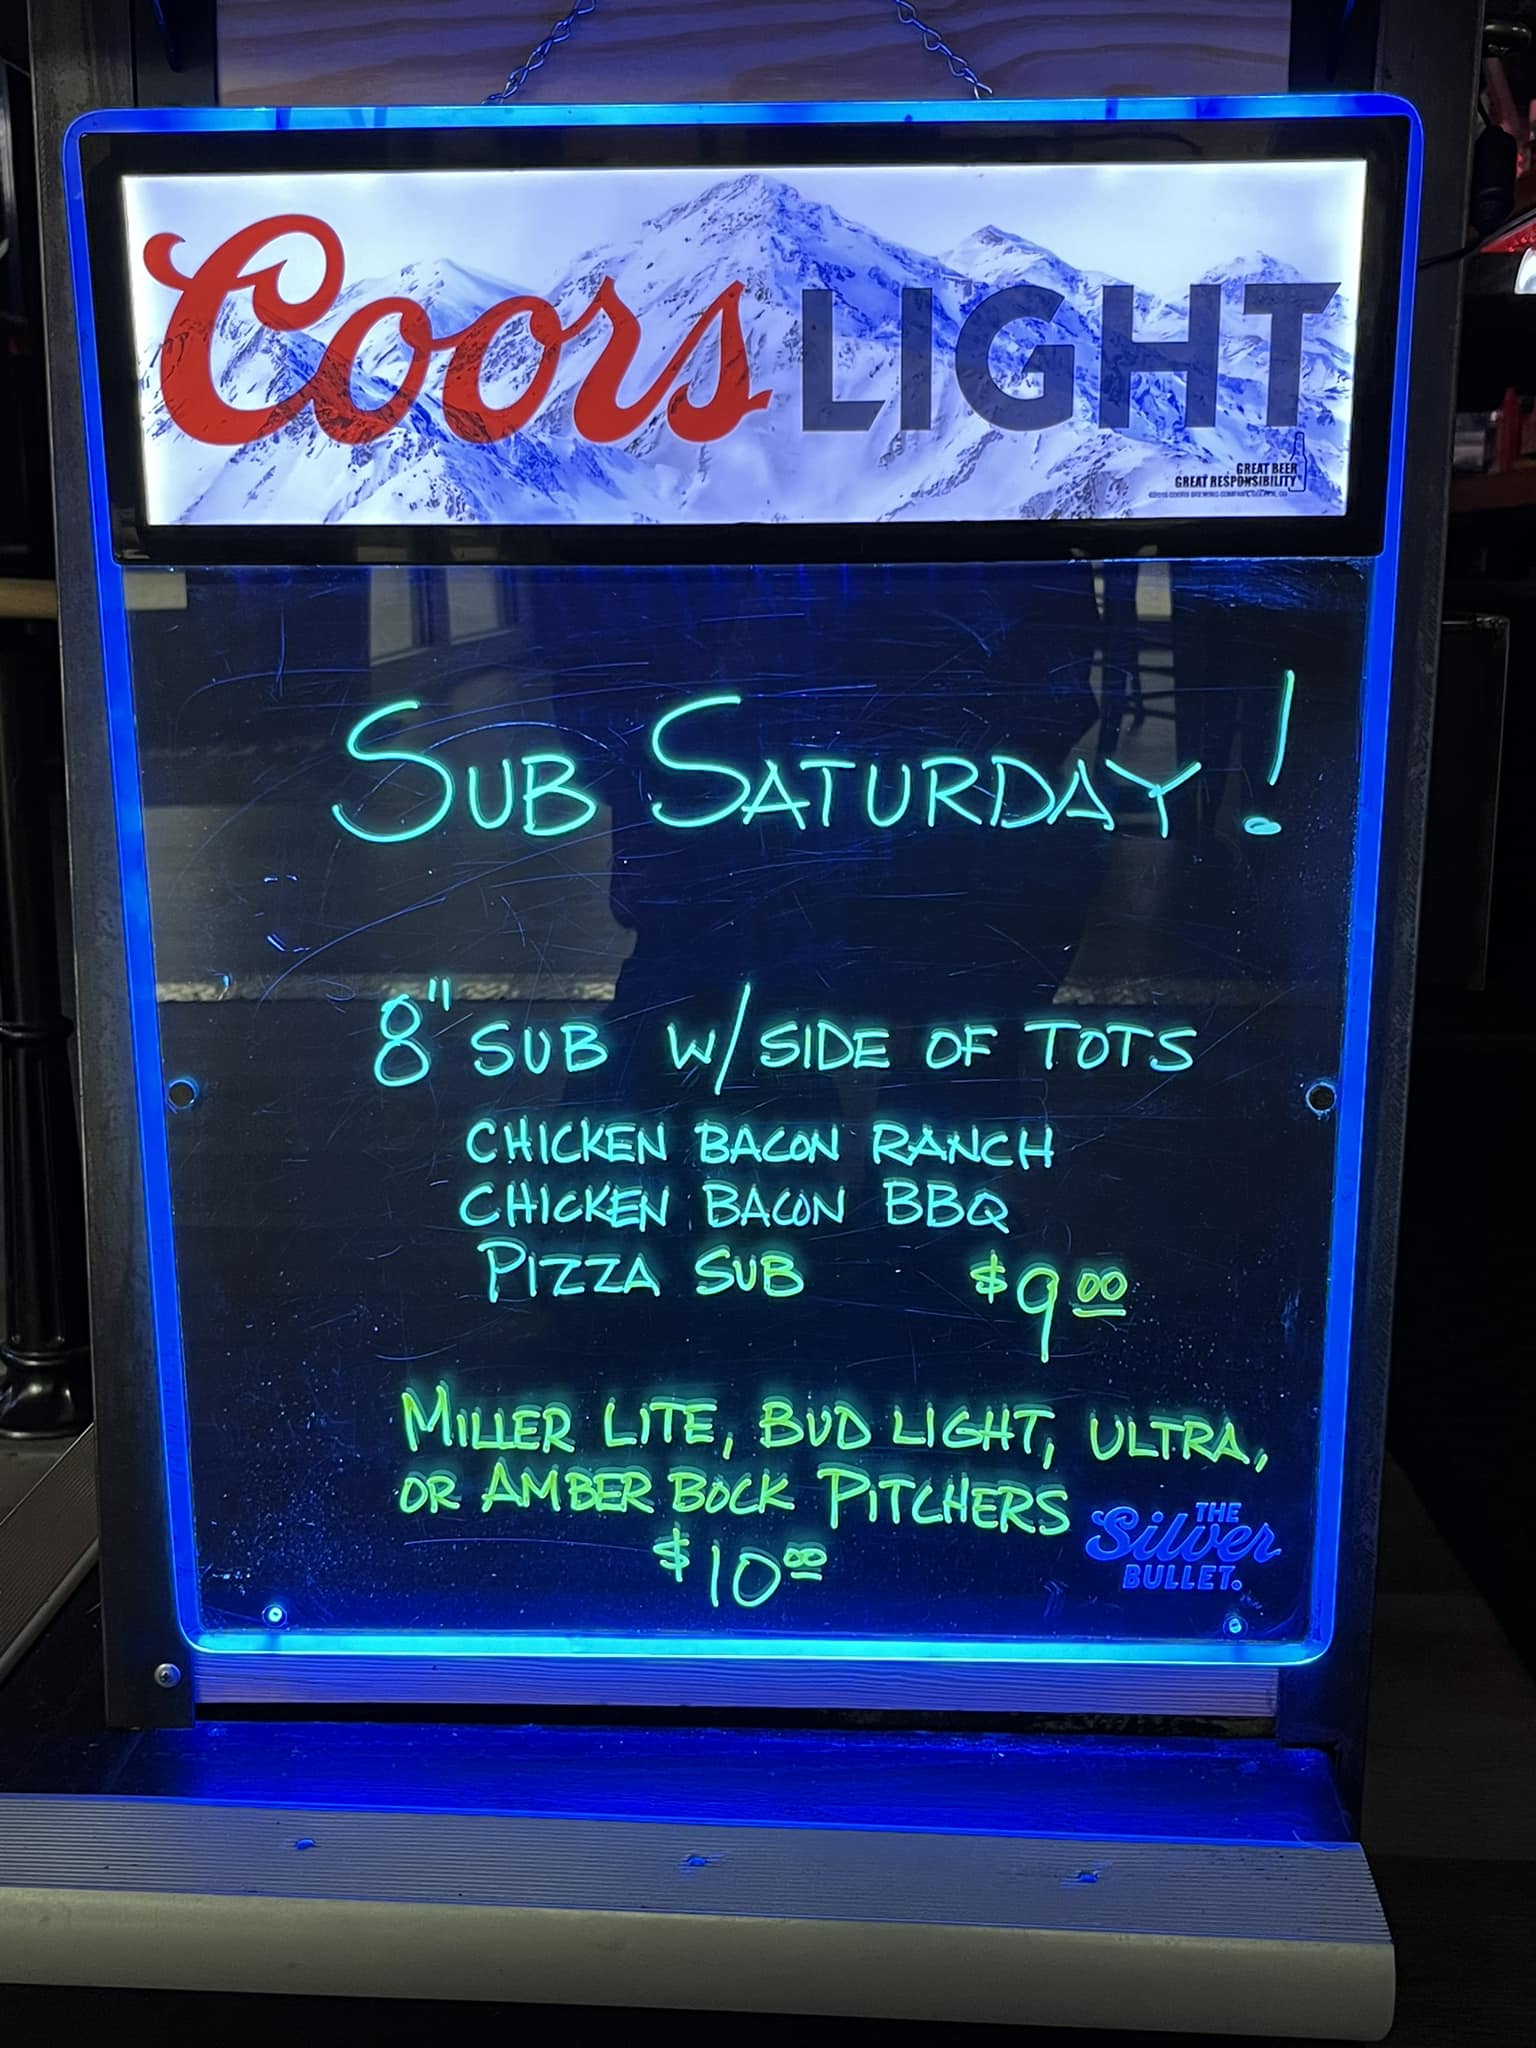 Coors LIGHT
GREAT BEER
GREAT RESPONSIBILITY
SUB SATURDAY!
8" SUB W/ SIDE OF TOTS
CHICKEN BACON RANCH
CHICKEN BACON BBQ
PIZZA SUB $9.00
MILLER LITE, BUD LIGHT, ULTRA,
OR AMBER BOCK PITCHERS
$10.00
THE
Silver
BULLET.